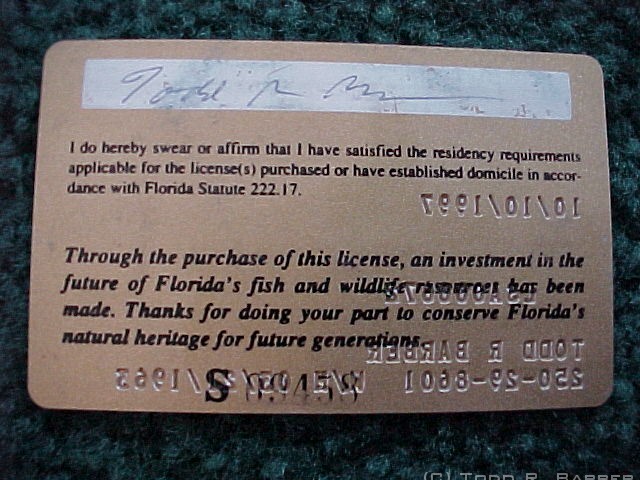 Todd R
I do hereby swear or affirm that I have satisfied the residency requirements
applicable for the license(s) purchased or have established domicile in accor-
dance with Florida Statute 222.17.
10/10/1997
Through the purchase of this license, an investment in the
future of Florida's fish and wildlife resources has been
made. Thanks for doing your part to conserve Florida's
natural heritage for future generations.
TODD R BARBER
S
(C) TODD R. BARBER